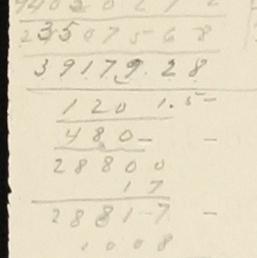 2350 7568
39179.28
1201.5-
480- -
28800
17
28817 -
1008